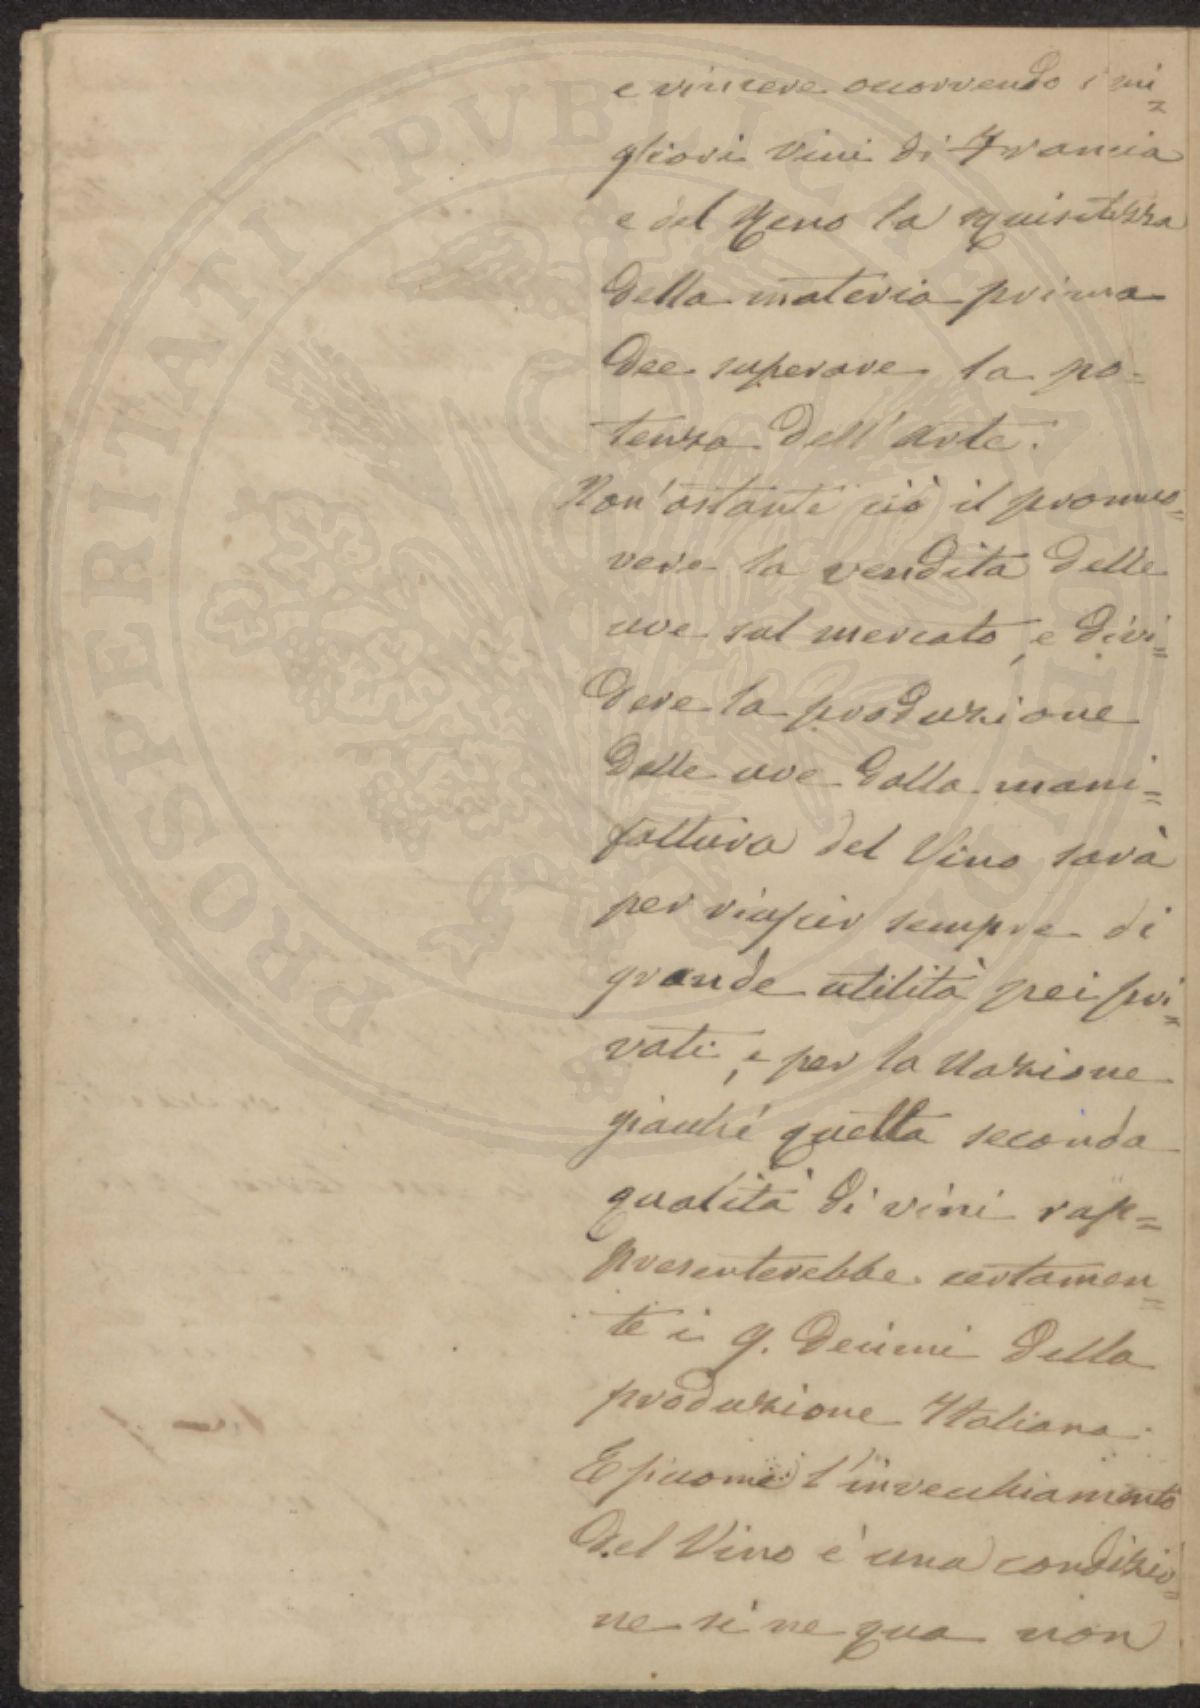 e vincere occorrendo i mi=
gliori vini di Francia
e del Reno la squisitezza
della materia prima
dee superare la po=
tenza dell'arte.
Non'ostante ciò il promuo=
vere la vendita delle
uve sul mercato, e divi=
dere la produzione
delle uve dalla mani=
fattura del Vino sarà
per riuscir sempre di
grande utilità pei pri=
vati, e per la Nazione
giacché quella seconda
qualità di vini rap=
presenterebbe certamen=
te i 9. decimi della
produzione Italiana.
E siccome l'invecchiamento
del Vino è una condizio=
ne sine qua non
PROSPERITATI PUBLICAE